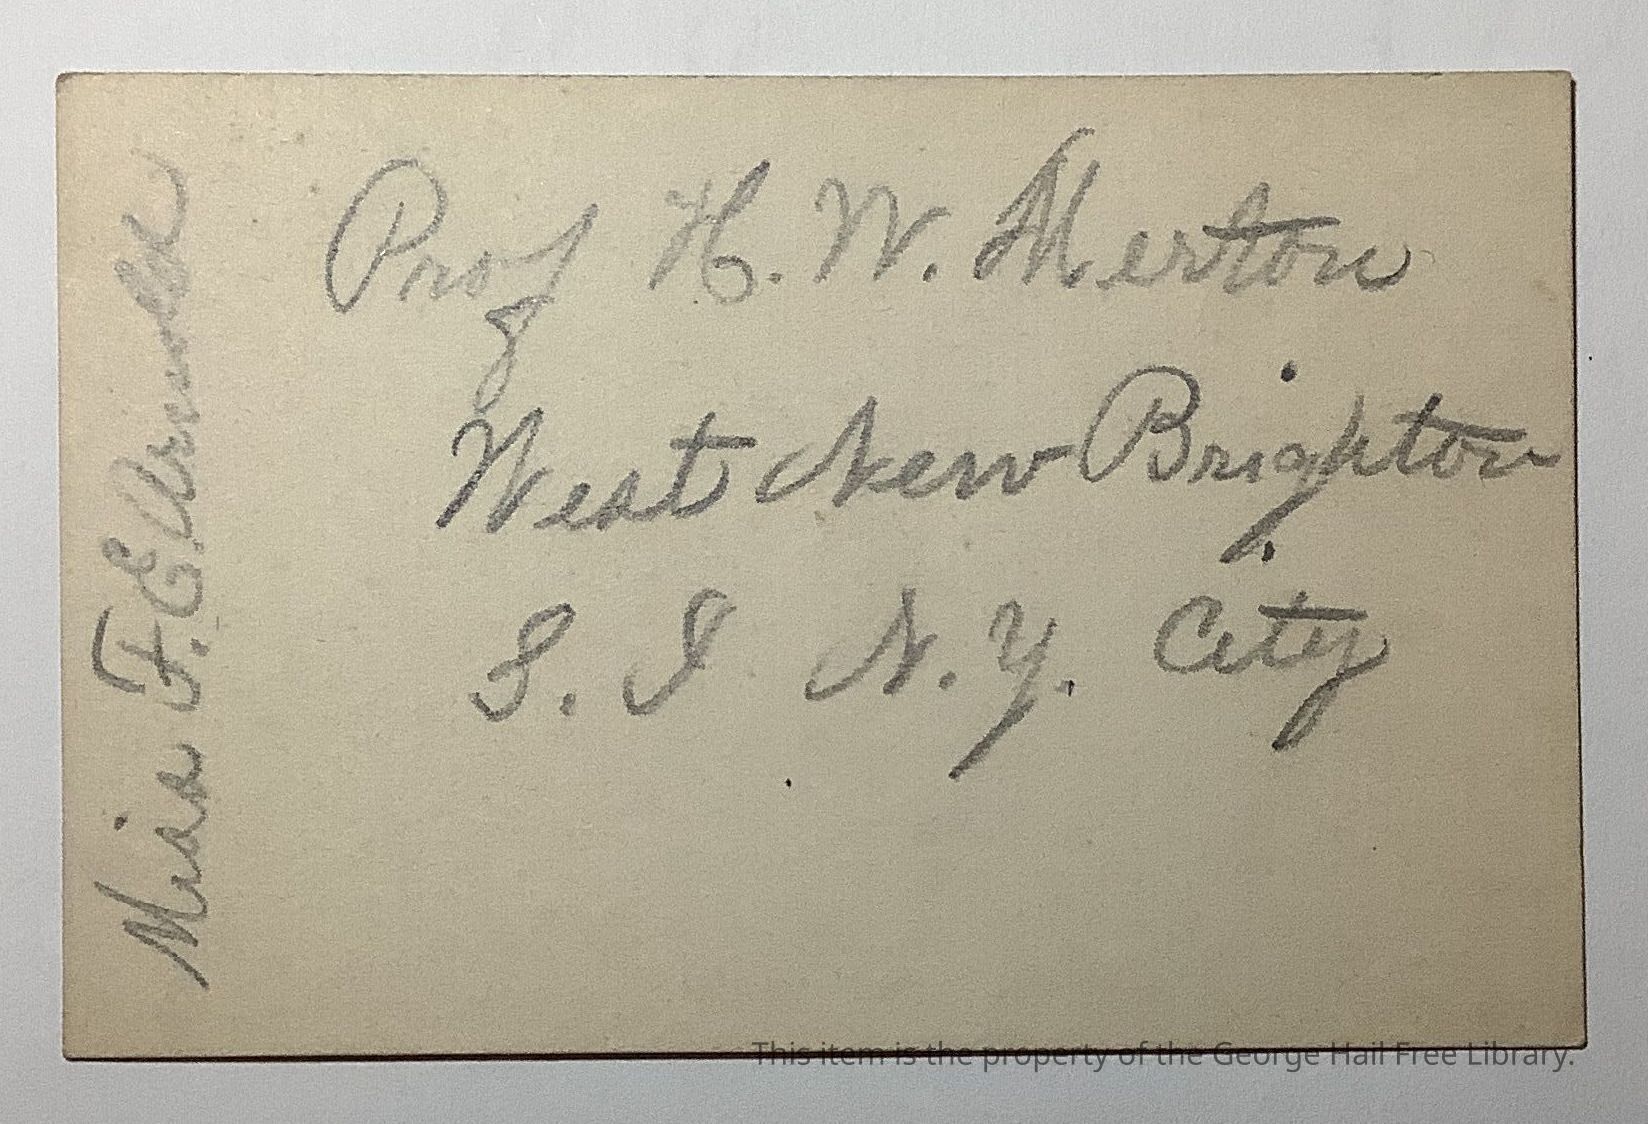 Prof H. W. Merton
West New Brighton
S. I N.Y. City
Miss F. E. Arnold
This item is the property of the George Hail Free Library.